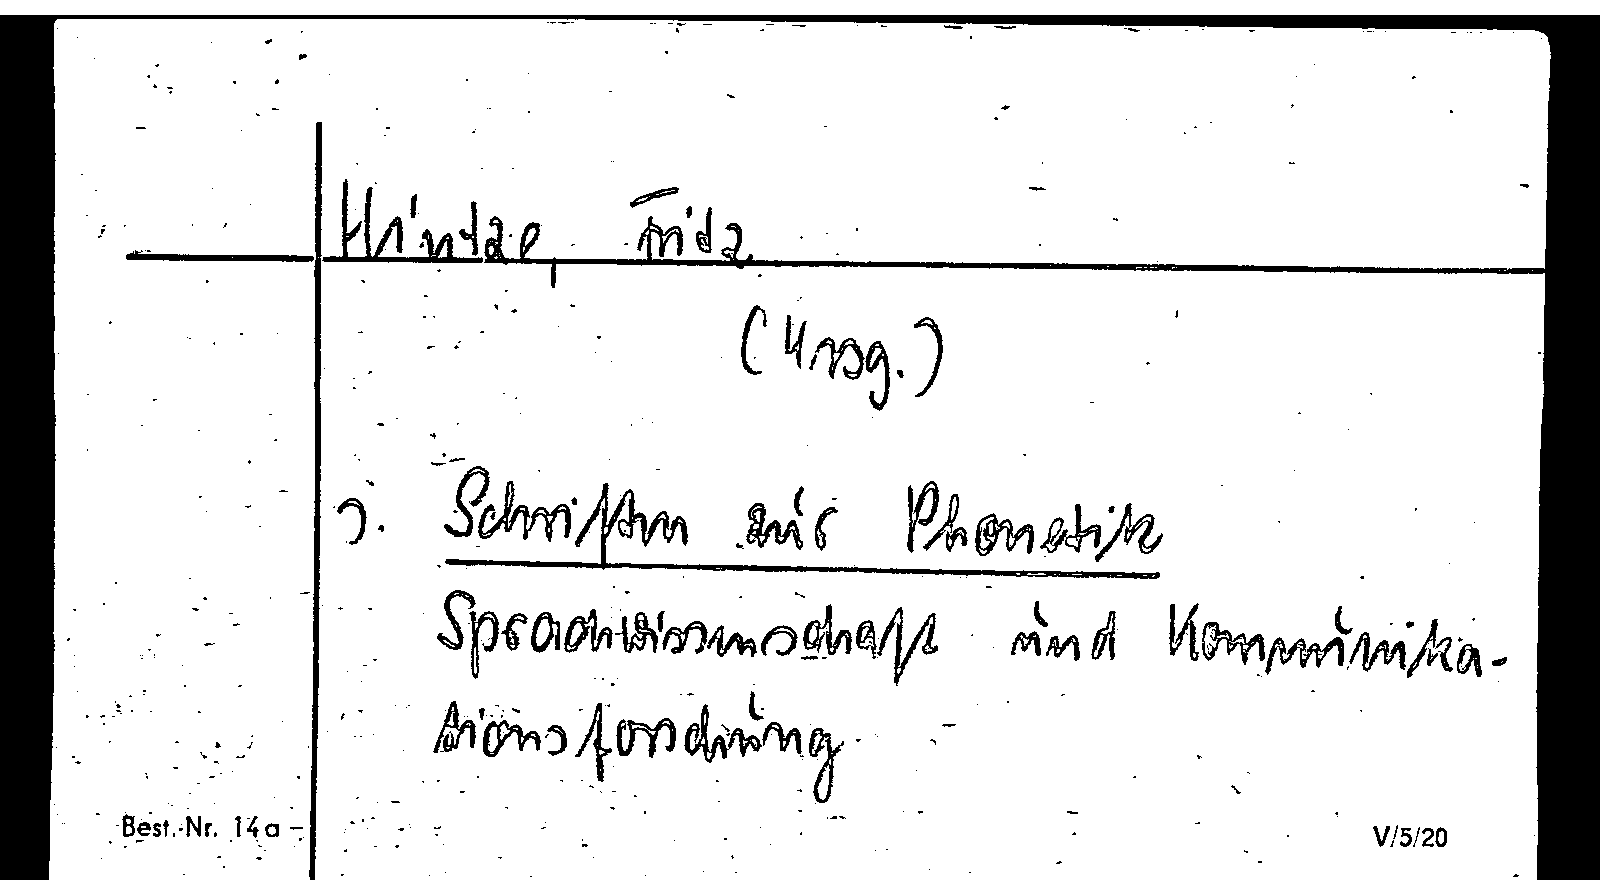 Hintze, Fritz
(Hrsg.)
s. Schriften zur Phonetik
Sprachwissenschaft und Kommunika-
tionsforschung
Best.-Nr. 14a
V/5/20